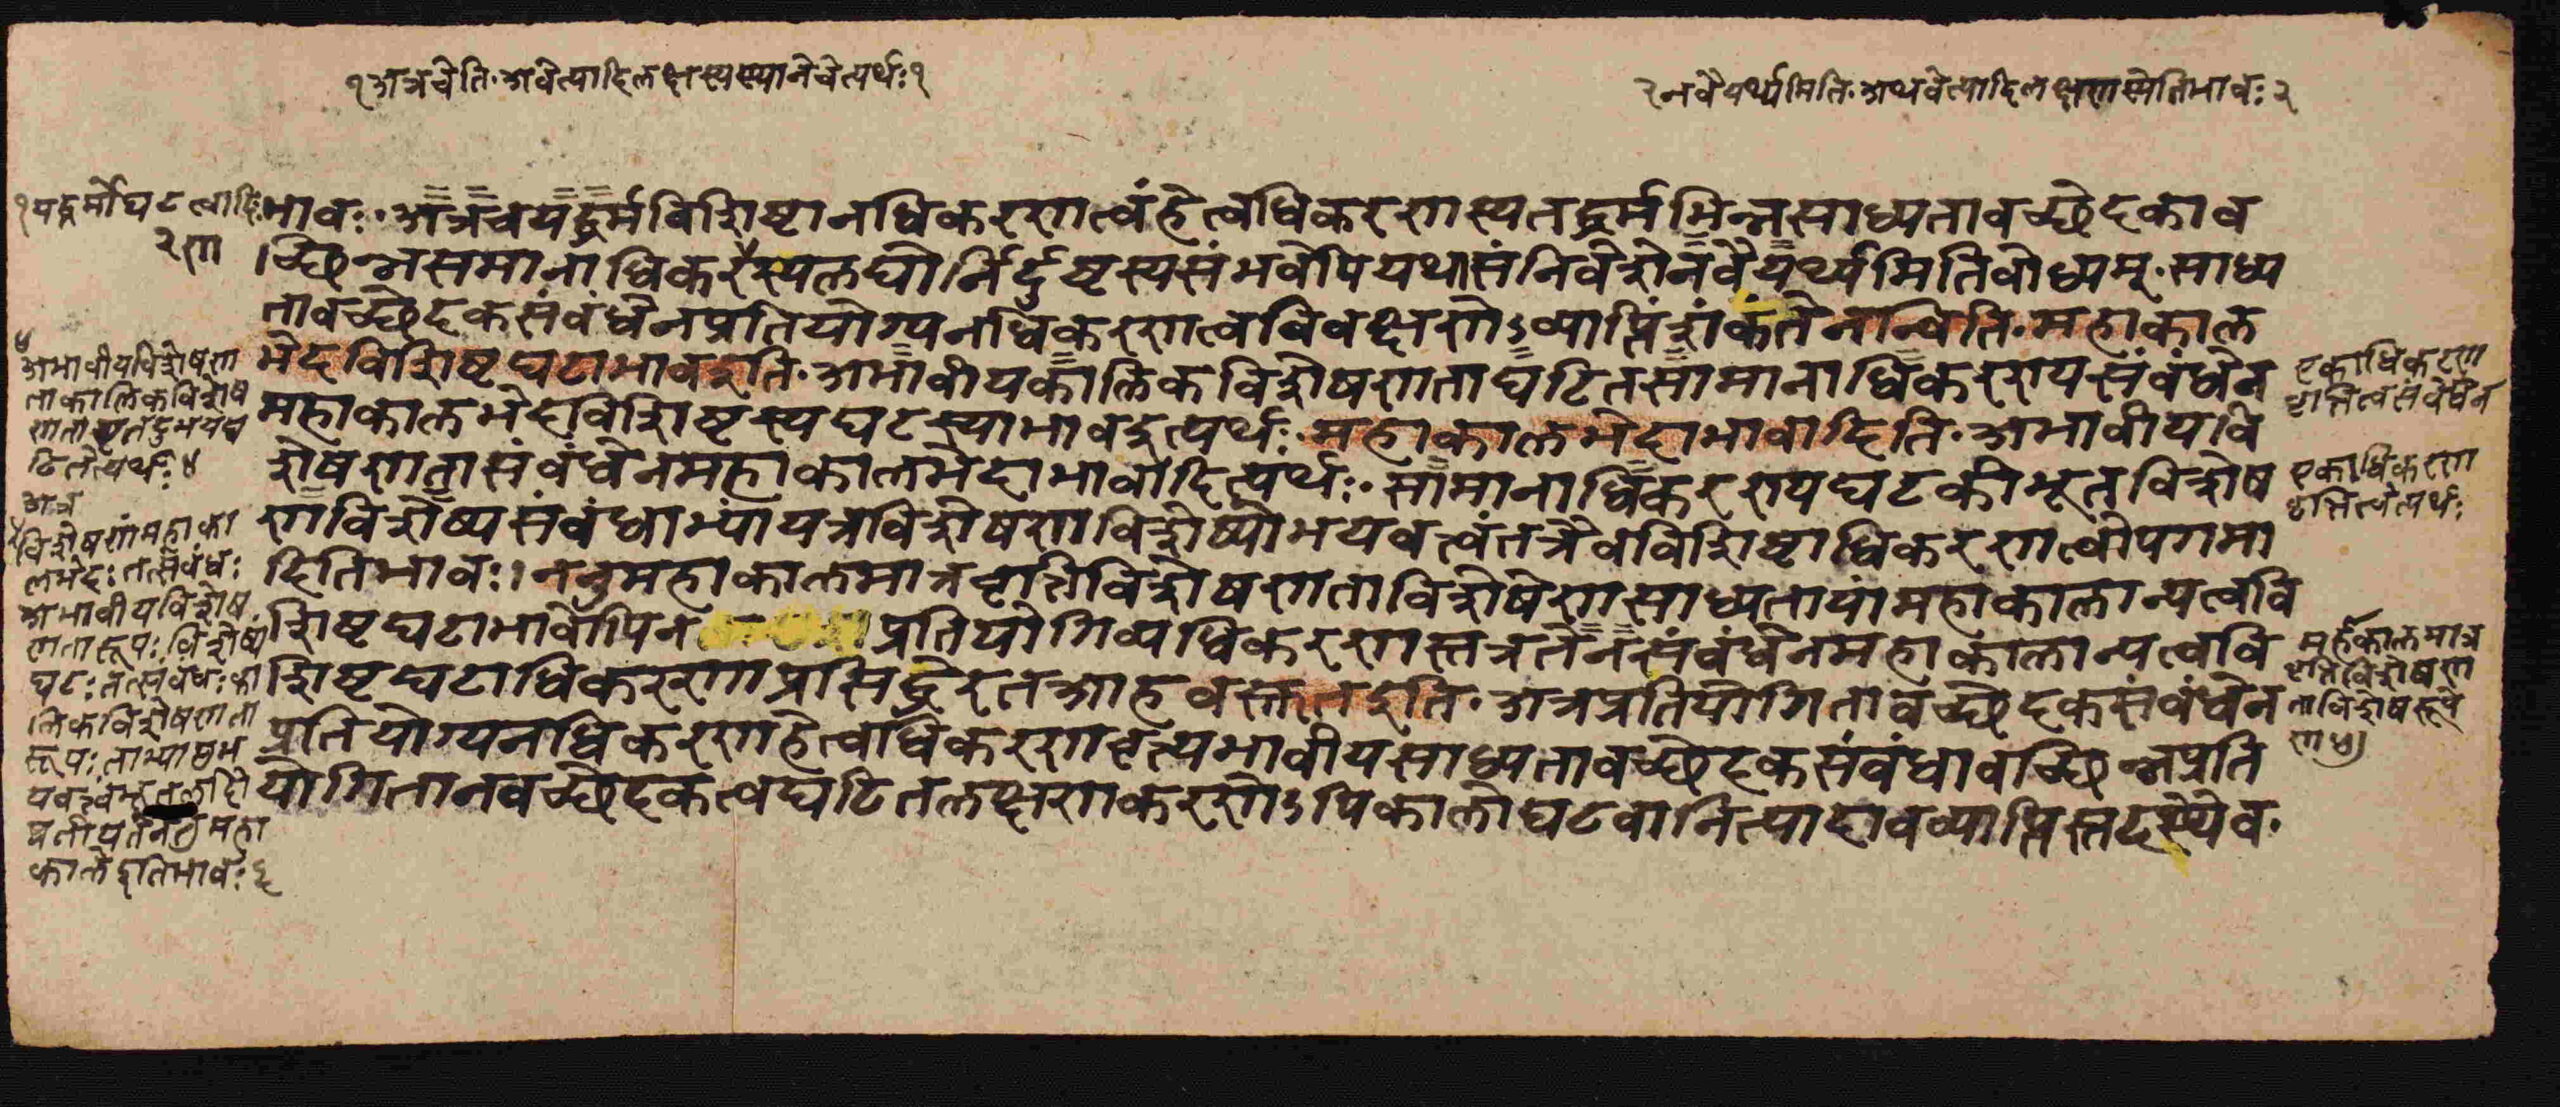 १अत्रचेति.अथवेत्यादिलक्षस्यस्थानेचेत्यर्थः१
२नवैयर्थ्यमिति.अथवेत्यादिलक्षणस्येतिभावः२
१यद्धर्मोघटत्वादिः
२ण
भावः.अत्रचयद्धर्मविशिष्टानधिकरणत्वंहेत्वधिकरणस्यतद्धर्मभिन्नसाध्यतावच्छेदकाव
च्छिन्नसमानाधिकरस्यलघोर्निर्दुष्टस्यसंभवेपियथासंनिवेशेनवैयर्थ्यमितिबोध्यम्.साध्य
तावच्छेदकसंबंधेनप्रतियोग्यनधिकरणत्वविवक्षणेऽव्याप्तिंशंकतेनन्विति.महाकाल
भेदविशिष्टघटाभावइति.अभावीयकालिकविशेषणताघटितसामानाधिकरण्यसंबंधेन
महाकालभेदविशिष्टस्यघटस्याभावइत्यर्थः.महाकालभेदाभावादिति.अभावीयवि
शेषणतासंबंधेनमहाकालभेदाभावादित्यर्थः.सामानाधिकरण्यघटकीभूतविशेष
णविशेष्यसंबंधाभ्यांयत्रविशेषणविशेष्योभयवत्त्वंतत्रैवविशिष्टाधिकरणत्वोपगमा
दितिभावः।ननुमहाकालमात्रवृत्तिविशेषणताविशेषेणसाध्यतायांमहाकालान्यत्ववि
शिष्टघटाभावोपिन प्रतियोगिव्यधिकरणस्तत्रतेनसंबंधेनमहाकालान्यत्ववि
शिष्टघटाधिकरणाप्रसिद्धेरतआहवस्तुतइति.अत्रप्रतियोगितावच्छेदकसंबंधेन
प्रतियोग्यनधिकरणहेत्वधिकरणवृत्त्यभावीयसाध्यतावच्छेदकसंबंधावच्छिन्नप्रति
योगितानवच्छेदकत्वघटितलक्षणकरणेऽपिकालोघटवानित्यादावव्याप्तिस्तदस्थैव.
४
अभावीयविशेषण
ताकालिकविशेष
णतातदुभयघ
टितेत्यर्थः४
अत्र
विशेषणंमहाका
लभेदःतत्संबंधः
अभावीयविशेष
णतारूपःविशेष्यं
घटःतत्संबंधःका
लिकविशेषणता
रूपःताभ्यामुभ
महा
कालेइतिभावः६
एकाधिकरण
वृत्तित्वसंबंधेन
एकाधिकरण
वृत्तित्वेत्यर्थः
महाकालमात्र
वृत्तिविशेषण
ताविशेषरूपे